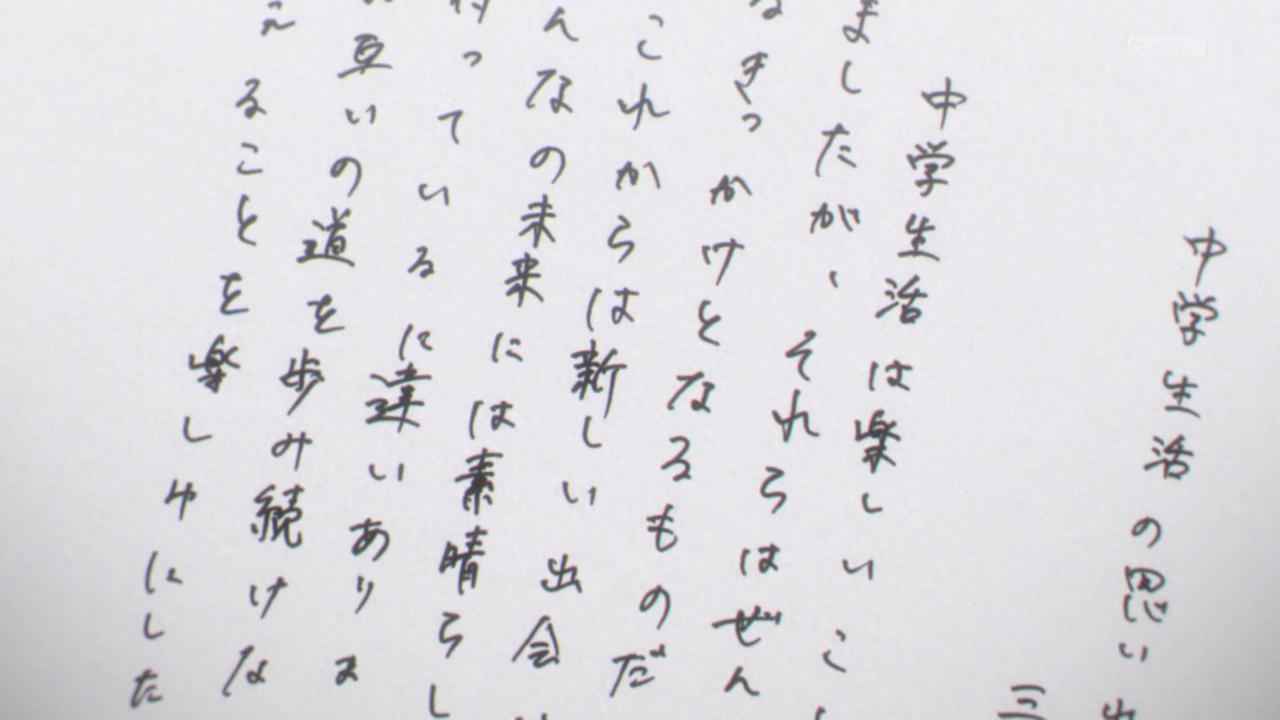 中学生活の思い出
三
中学生活は楽しいこ
ましたが、それらはぜん
るきっかけとなるものだ
これからは新しい出会
んなの未来には素晴らし
待っているに違いありま
互いの道を歩み続けな
えることを楽しみにした